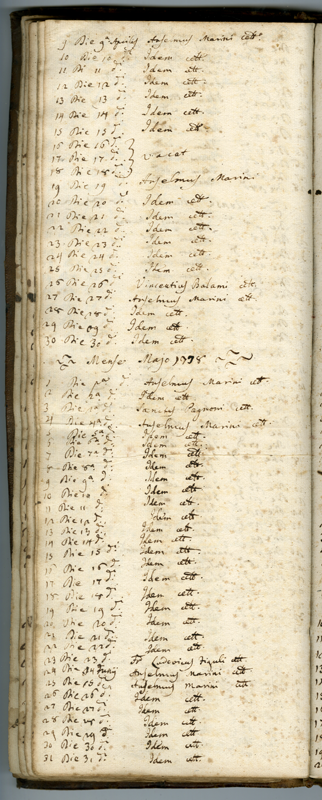 9 Die 9ª Aprilis Anselmus Marini cett.
10 Die 10 d. Idem cett.
11 Di 11 d. Idem cett.
12 Die 12 d. Idem cett.
13 Die 13 d. Idem cett.
14 Die 14 d. Idem cett.
15 Die 15 d. Idem cett.
16 Die 16 d.
17 Die 17 d. vacat
18 Die 18 d.
19 Die 19 d. Anselmus Marini
20 Die 20 d. Idem cett.
21 Die 21 d. Idem cett.
22 Die 22 d. Idem cett.
23 Die 23 d. Idem cett.
24 Die 24 d. Idem cett.
25 Die 25 d. Idem cett.
26 Die 26 d. Vincentius Balami cett.
27 Die 27 d. Anselmus Marini cett.
28 Die 28 d. Idem cett.
29 Die 29 d. Idem cett.
30 Die 30 d. Idem cett.
Mense Majo 1778
1 Die pª d. Anselmus Marini cett.
2 Die 2ª d. Idem cett.
3 Die 3ª d. Pagnoni cett.
4 Die 4ª d. Anselmus Marini cett.
5 Die 5ª d. Idem cett.
6 Die 6ª d. Idem cett.
7 Die 7ª d. Idem cett.
8 Die 8ª d. Idem cett.
9 Die 9ª d. Idem cett.
10 Die 10 d. Idem cett.
11 Die 11 d. Idem cett.
12 Die 12 d. Idem cett.
13 Die 13 d. Idem cett.
14 Die 14 d. Idem cett.
15 Die 15 d. Idem cett.
16 Die 16 d. Idem cett.
17 Die 17 d. Idem cett.
18 Die 18 d. Idem cett.
19 Die 19 d. Idem cett.
20 Die 20 d. Idem cett.
21 Die 21 d. Idem cett.
22 Die 22 d. Idem cett.
23 Die 23 d. Ludovicus cett.
24 Die 24 Anselmus Marini cett.
25 Die 25 d. Anselmus Marini cett.
26 Die 26 d. Idem cett.
27 Die 27 d. Idem cett.
28 Die 28 d. Idem cett.
29 Die 29 d. Idem cett.
30 Die 30 d. Idem cett.
31 Die 31 d. Idem cett.